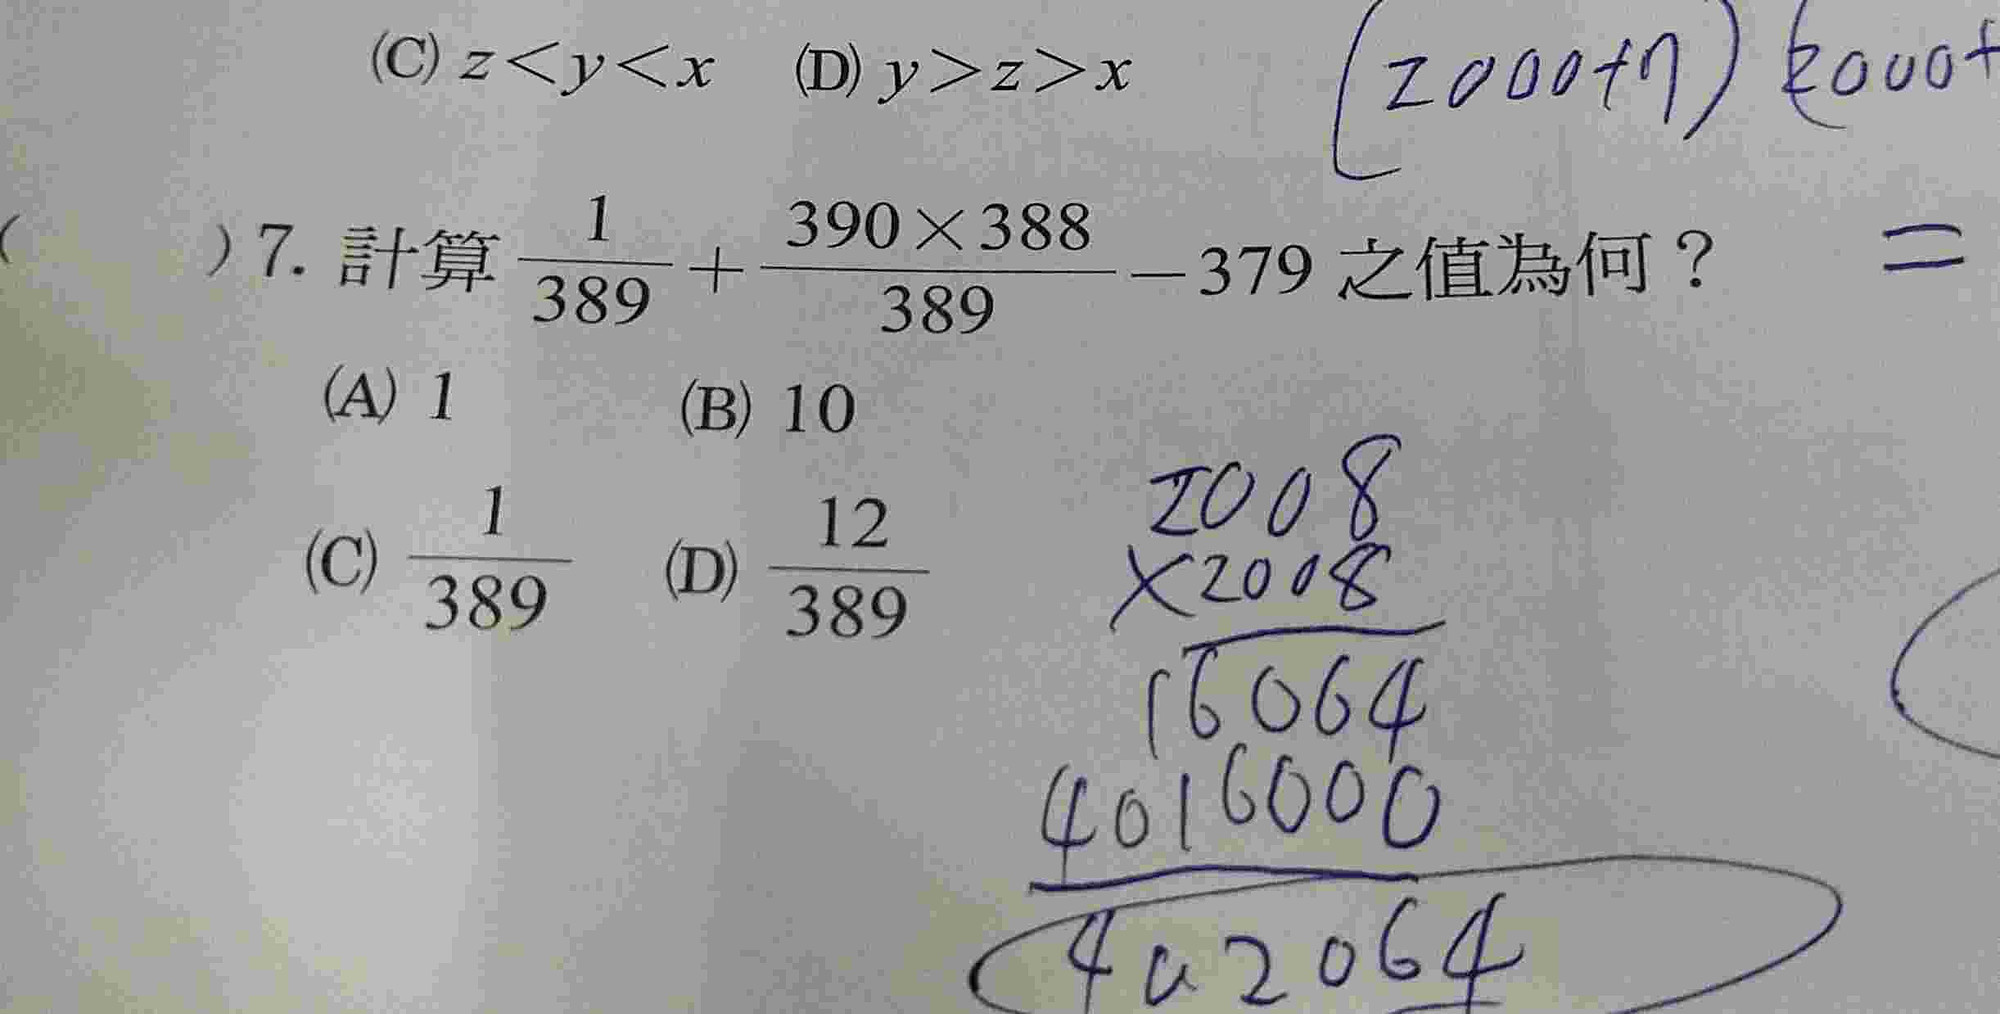 (C) z<y<x (D) y>z>x
(2000+7) (2000+
( ) 7. 計算 1/389 + 390×388/389 −379 之值為何？ =
(A) 1 (B) 10
(C) 1/389 (D) 12/389
2008
×2008
16064
4016000